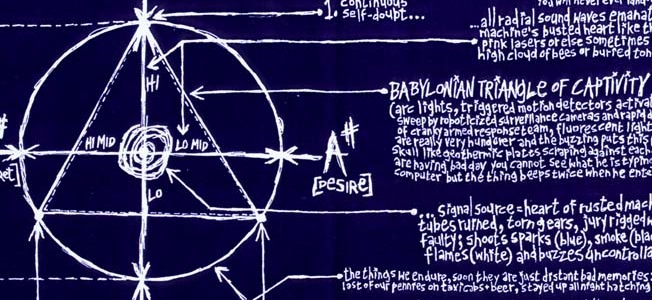 1. continuous
self-doubt...
...all radial sound waves emanate
machine's busted heart like th
pink lasers or else sometimes
high cloud of bees or buried ton
HI
BABYLONIAN TRIANGLE OF CAPTIVITY
(arc lights, triggered motion detectors activat
sweep by roboticized surveillance cameras and rapid d
of cranky armed response team, fluorescent light
are really very hungover and the buzzing puts this
skull like geothermic plates scraping against each
are having bad day you cannot see what he is typing
computer but the thing beeps twice when he ente
HI MID
LO MID
#
A#
[DESIRE]
LO
... signal source = heart of rusted mach
tubes ruined, torn gears, jury rigged w
faulty; shoots sparks (blue), smoke (blac
flames (white) and buzzes uncontrolla
the things we endure, soon they are just distant bad memories:
last of our pennies on taxicabs + beer, stayed up all night hatching